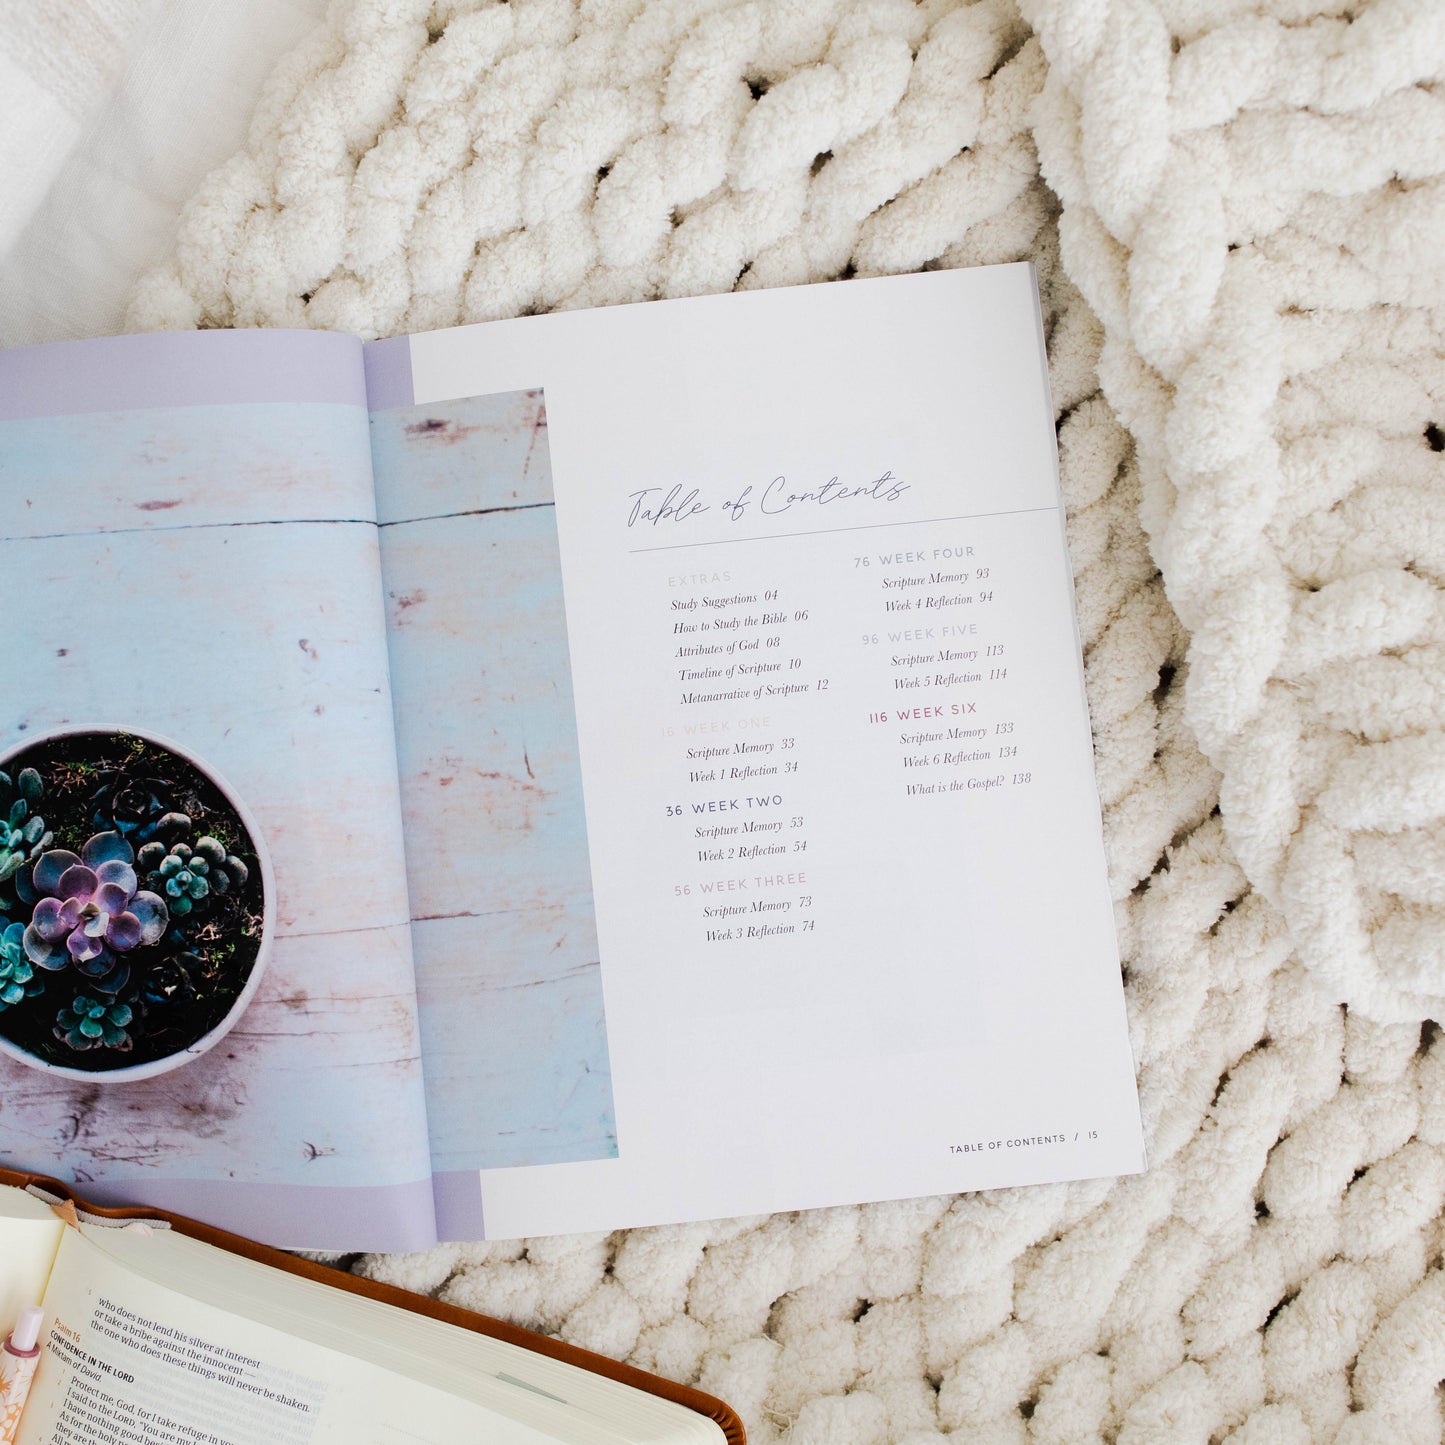 Table of Contents
EXTRAS
Study Suggestions 04
How to Study the Bible 06
Attributes of God 08
Timeline of Scripture 10
Metanarrative of Scripture 12
16 WEEK ONE
Scripture Memory 33
Week 1 Reflection 34
36 WEEK TWO
Scripture Memory 53
Week 2 Reflection 54
56 WEEK THREE
Scripture Memory 73
Week 3 Reflection 74
76 WEEK FOUR
Scripture Memory 93
Week 4 Reflection 94
96 WEEK FIVE
Scripture Memory 113
Week 5 Reflection 114
116 WEEK SIX
Scripture Memory 133
Week 6 Reflection 134
What is the Gospel? 138
TABLE OF CONTENTS / 15
5 who does not lend his silver at interest
or take a bribe against the innocent —
the one who does these things will never be shaken.
Psalm 16
CONFIDENCE IN THE LORD
A Miktam of David.
1 Protect me, God, for I take refuge in
2 I said to the LORD, "You are my
I have nothing good
3 As for the holy
they are the
4 All